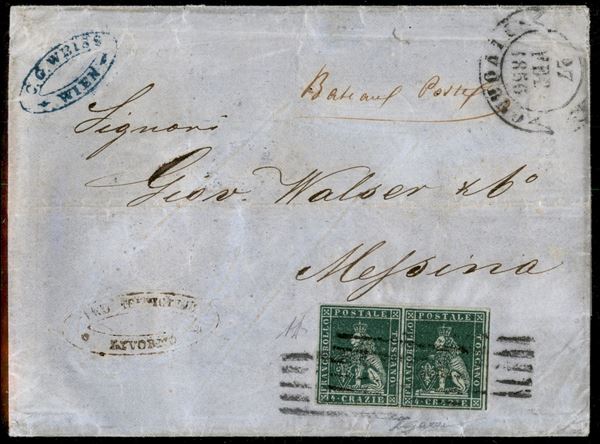 C.G. WEISS
WIEN
27
1856
Bateaux Poste
Signori
Giov. Walser & Co
Messina
LIVORNO
FRANCOBOLLO POSTALE TOSCANO
4 CRAZIE
FRANCOBOLLO POSTALE TOSCANO
4 CRAZIE